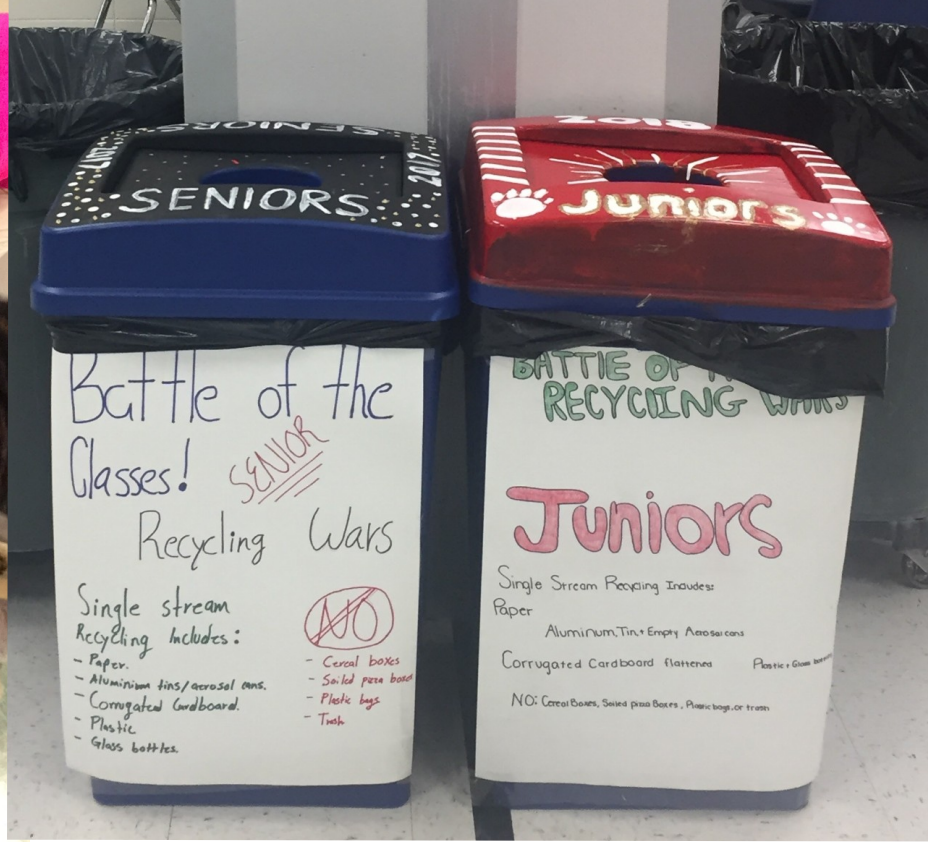 SENIORS
2017
2017
SENIORS
Battle of the
Classes!
SENIOR
Recycling Wars
Single stream
Recycling Includes:
- Paper.
- Aluminium tins/aerosol cans.
- Corrugated Cardboard.
- Plastic
- Glass bottles.
NO
- Cereal boxes
- Soiled pizza boxes
- Plastic bags
- Trash
2018
Juniors
BATTLE OF
RECYCLING WARS
Juniors
Single Stream Recycling Includes:
Paper
Aluminum, Tin + Empty Aerosol cans
Corrugated Cardboard flattened Plastic + Glass bottles
NO: Cereal Boxes, Soiled pizza Boxes, Plastic bags, or trash